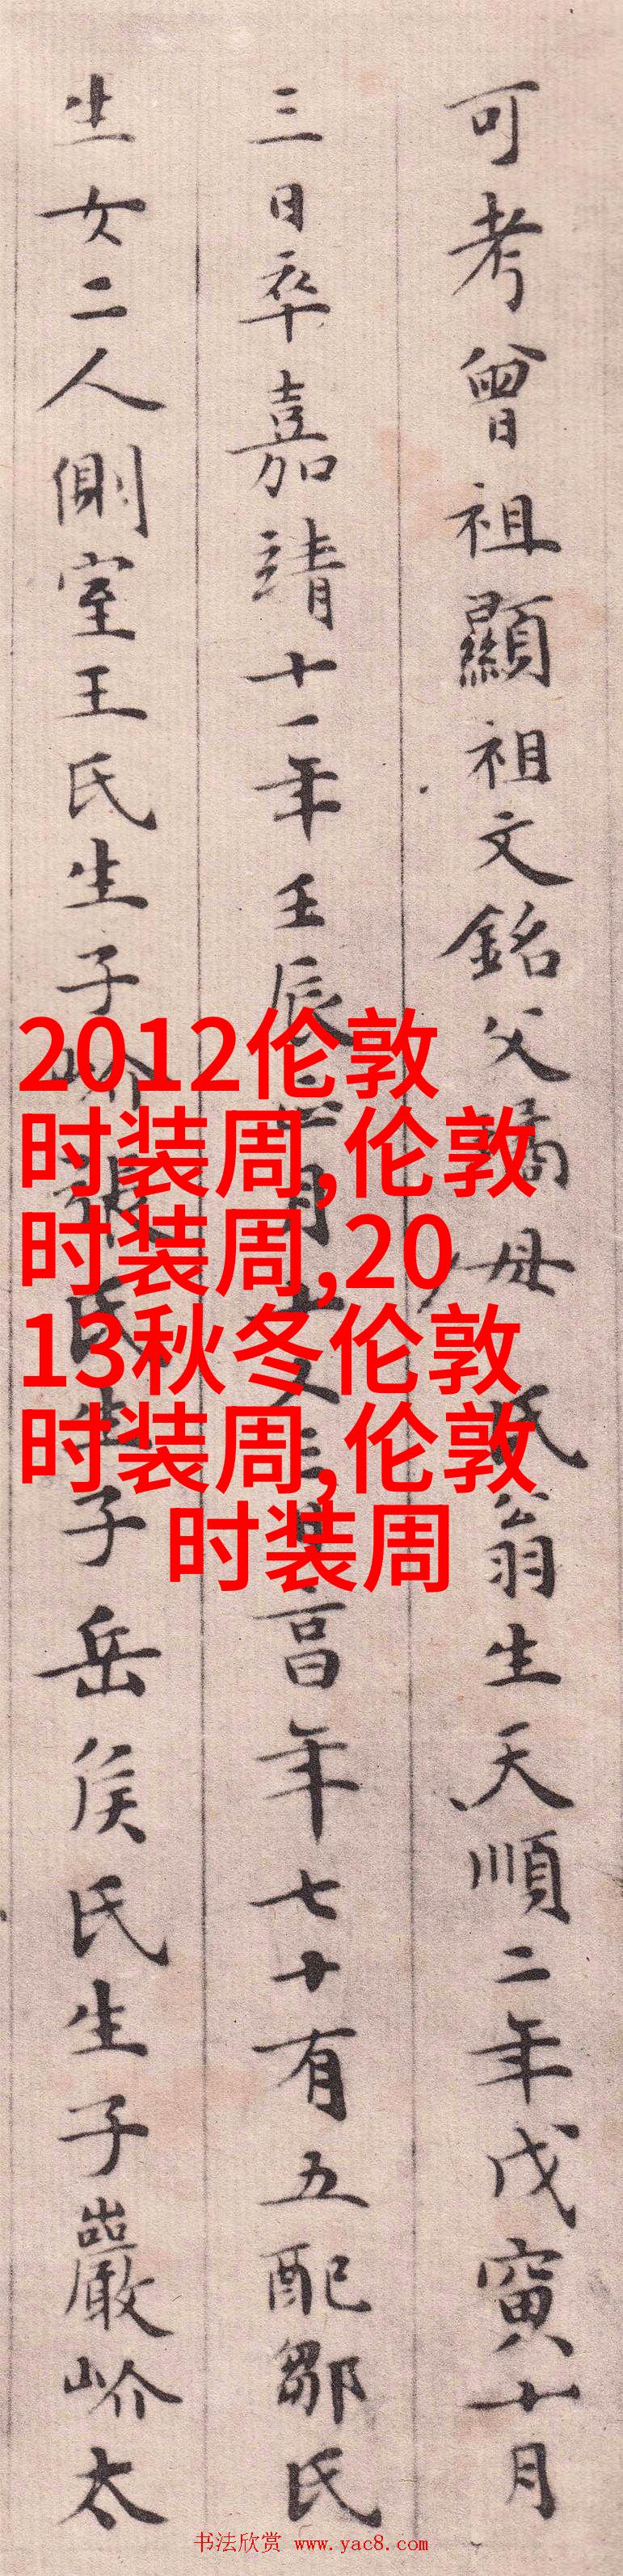 可考曾祖顯祖文銘父璚母 氏翁生天順二年戊寅十月
三日卒嘉靖十一年壬辰正月廿又三日享年七十有五配鄒氏
生女二人側室王氏生子岕張氏生子岳侯氏生子巖岕太
2012伦敦
时装周,伦敦
时装周,20
13秋冬伦敦
时装周,伦敦
时装周
书法欣赏 www.yac8.com